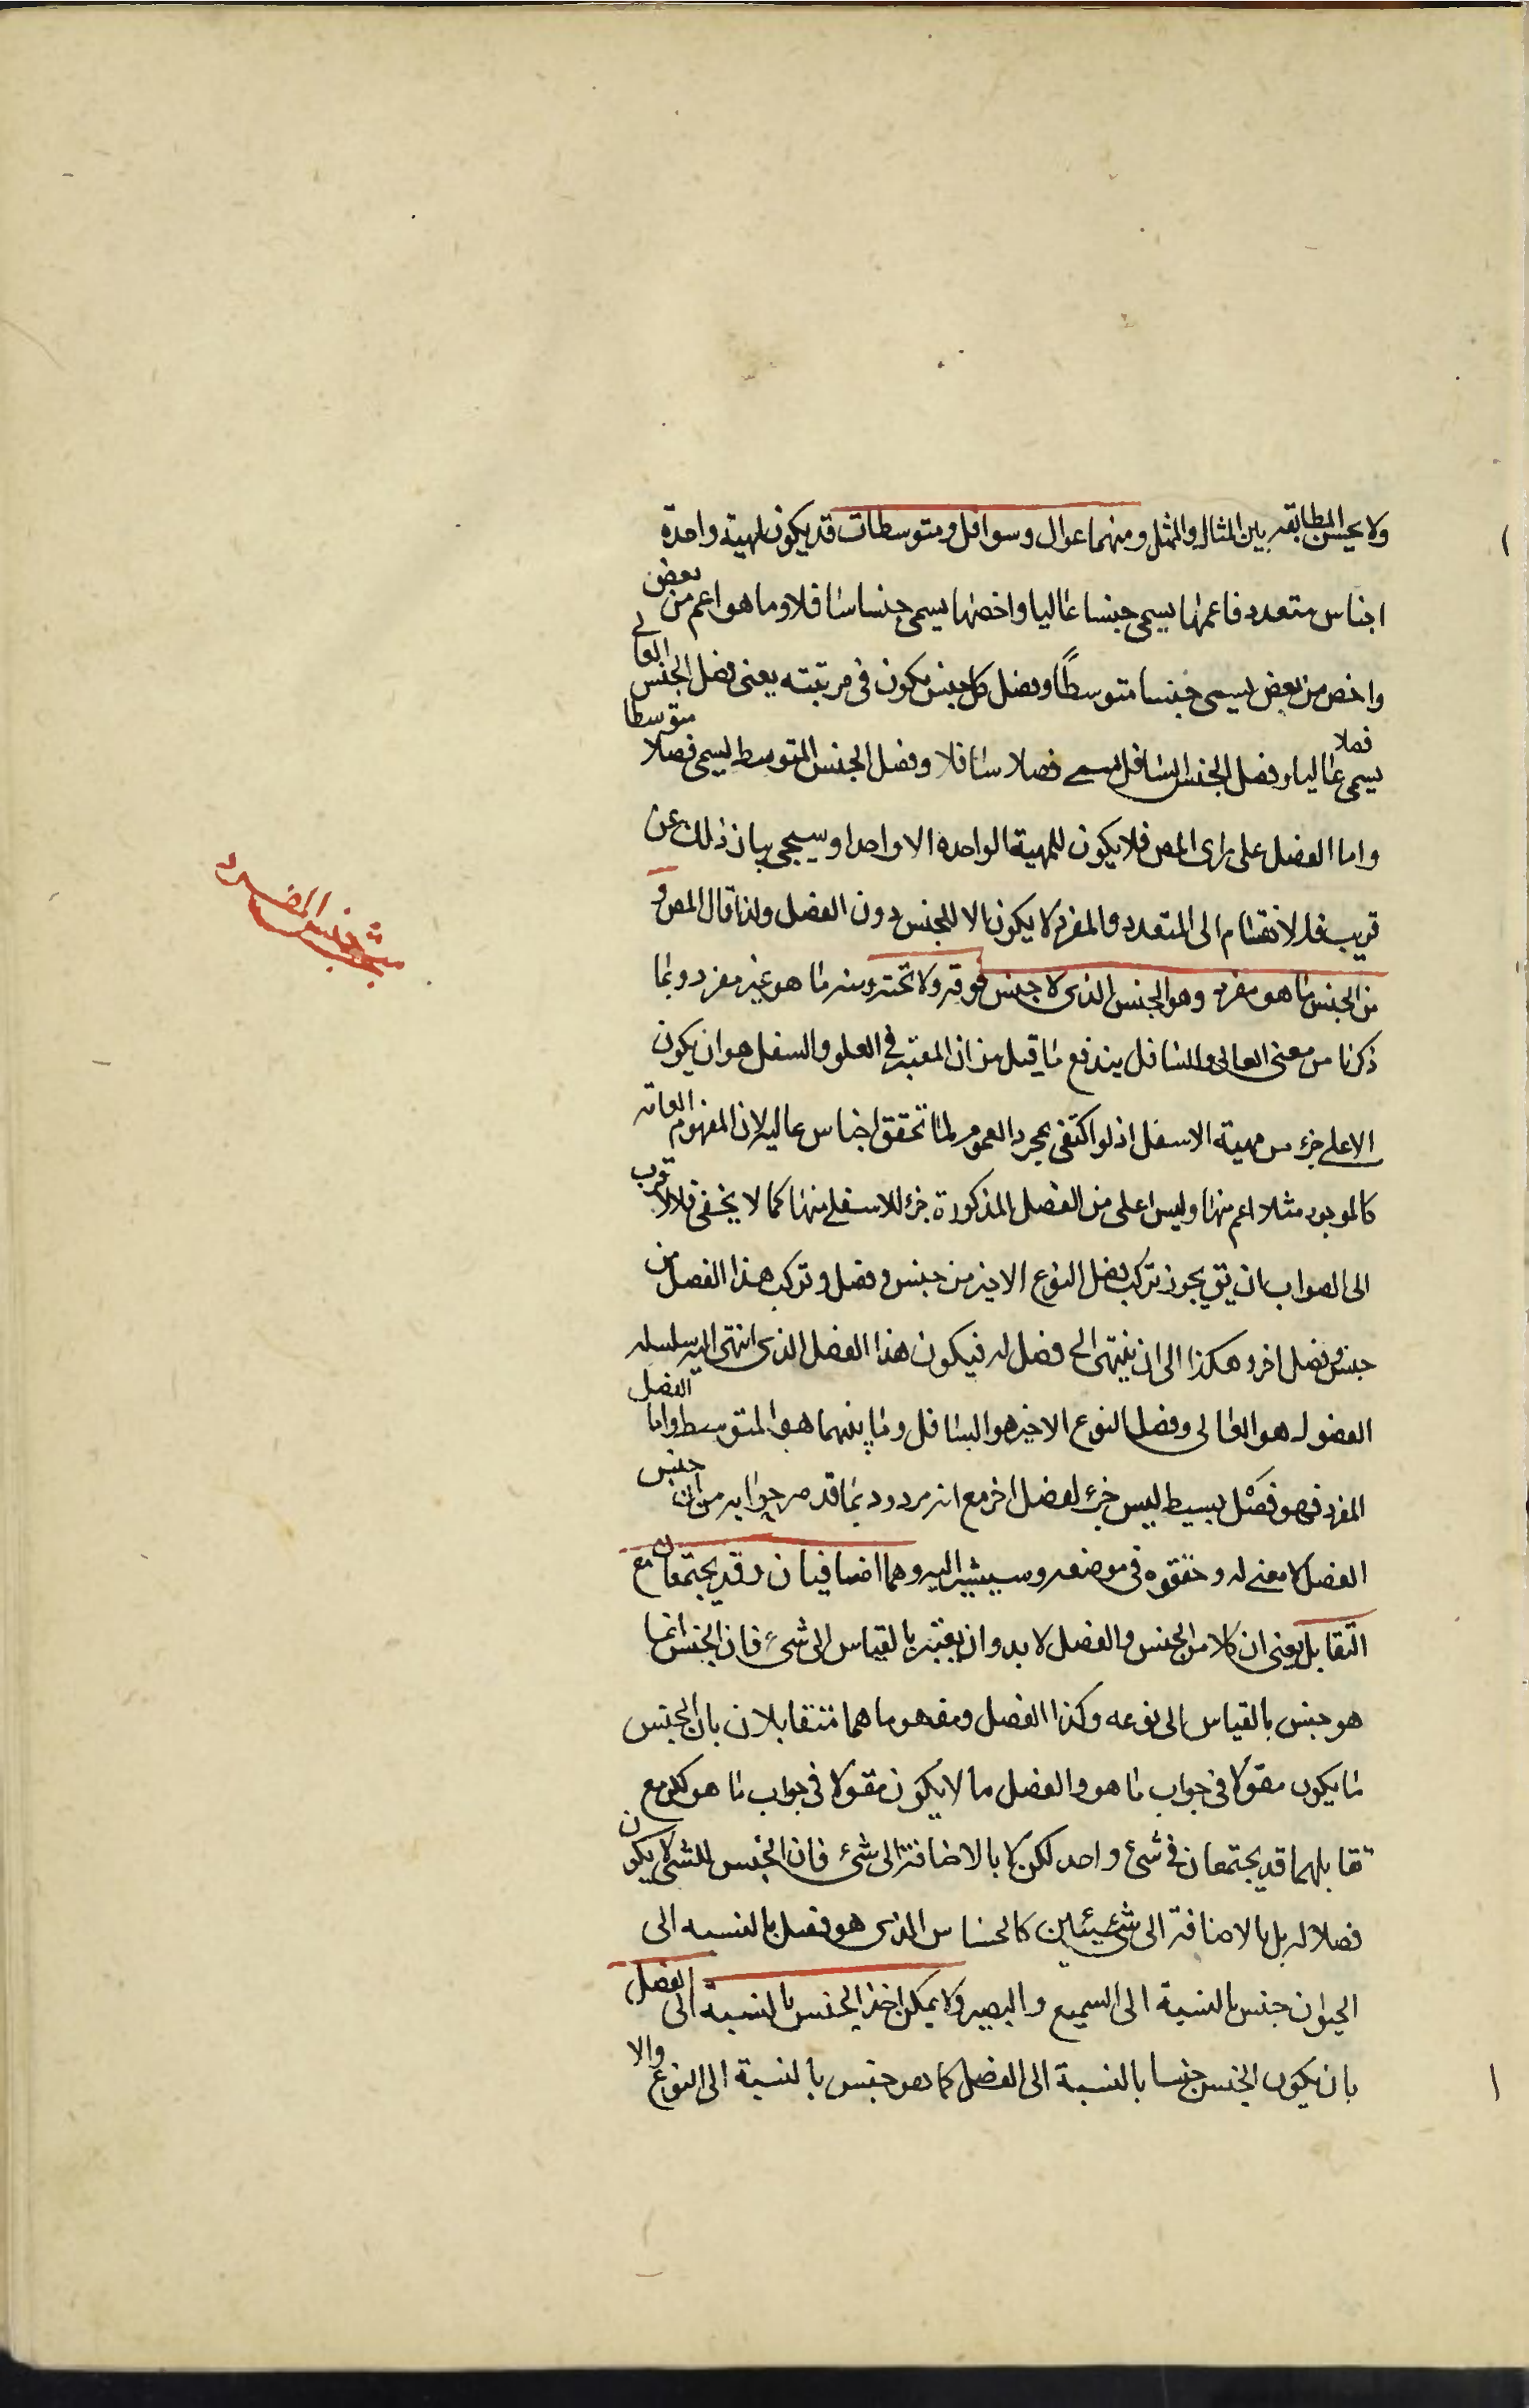 ولا يحسن المطابقه بين المثال والمثل ومنهما عوال وسوافل ومتوسطات قد يكون لمهية واحدة
اجناس متعدد فاعمها يسمى جنسا عاليا واخصها يسمى جنسا سافلا وما هو اعم من بعض
واخص من بعض يسمى جنسا متوسطًا وفصل كل جنس يكون فى مرتبته يعنى فصل الجنس العالى
يسمى فصلا عاليا وفصل الجنس السافل يسمى فصلا سافلا وفصل الجنس المتوسط يسمى فصلا متوسطا
واما الفصل على راى المص فلا يكون للمهية الواحده الا واحدا وسيجى بيان ذلك عن
قريب فلا انقسام الى المتعدد والمفرد لا يكون الا للجنس دون الفصل ولذا قال المص و
من الجنس ما هو مفرد وهو الجنس الذى لا جنس فوقه ولا تحته ومنه ما هو غير مفرد وبما
ذكرنا من معنى العالى والسافل يندفع ما قيل من ان المعتبر فى العلو والسفل هو ان يكون
الاعلى جزء من مهية الاسفل اذ لو اكتفى بمجرد العموم لما تحقق اجناس عاليه لان المفهوم العامه
كالموجود مثلا اعم منها وليس اعلى من الفصل المذكورة جزء للاسفل منها كما لا يخفى فالاقرب
الى الصواب ان يق يجوز تركب فصل النوع الاخير من جنس وفصل وتركب هذا الفصل من
جنس وفصل اخر وهكذا الى ان ينتهى الى فصل له فيكون هذا الفصل الذى انتهى اليه سلسله
الفصول هو العالى وفصل النوع الاخير هو السافل وما بينهما هو المتوسط واما الفصل
المفرد فهو فصل بسيط ليس جزء لفصل اخر مع انه مردود بما قد مر جوابه من ان جنس
الفصل لا معنى له وحققوه فى موضعه وسيشير اليه وهما اضافيان وقد يجتمعان مع
التقابل يعنى ان كلا من الجنس والفصل لا بد وان يعتبر بالقياس الى شئ فان الجنس انما
هو جنس بالقياس الى نوعه وكذا الفصل ومفهوما هما متقابلان بان الجنس
ما يكون مقولا فى جواب ما هو والفصل ما لا يكون مقولا فى جواب ما هو لكن مع
تقابلهما قد يجتمعان فى شئ واحد لكن لا بالاضافة الى شئ فان الجنس للشئ لا يكون
فصلا له بل بالاضافة الى شيئين كالحساس الذى هو فصل بالنسبه الى
الحيوان جنس بالنسبة الى السميع والبصير ولا يمكن اخذ الجنس بالنسبة الى الفصل
بان يكون الجنس جنسا بالنسبة الى الفصل كما هو جنس بالنسبة الى النوع والا